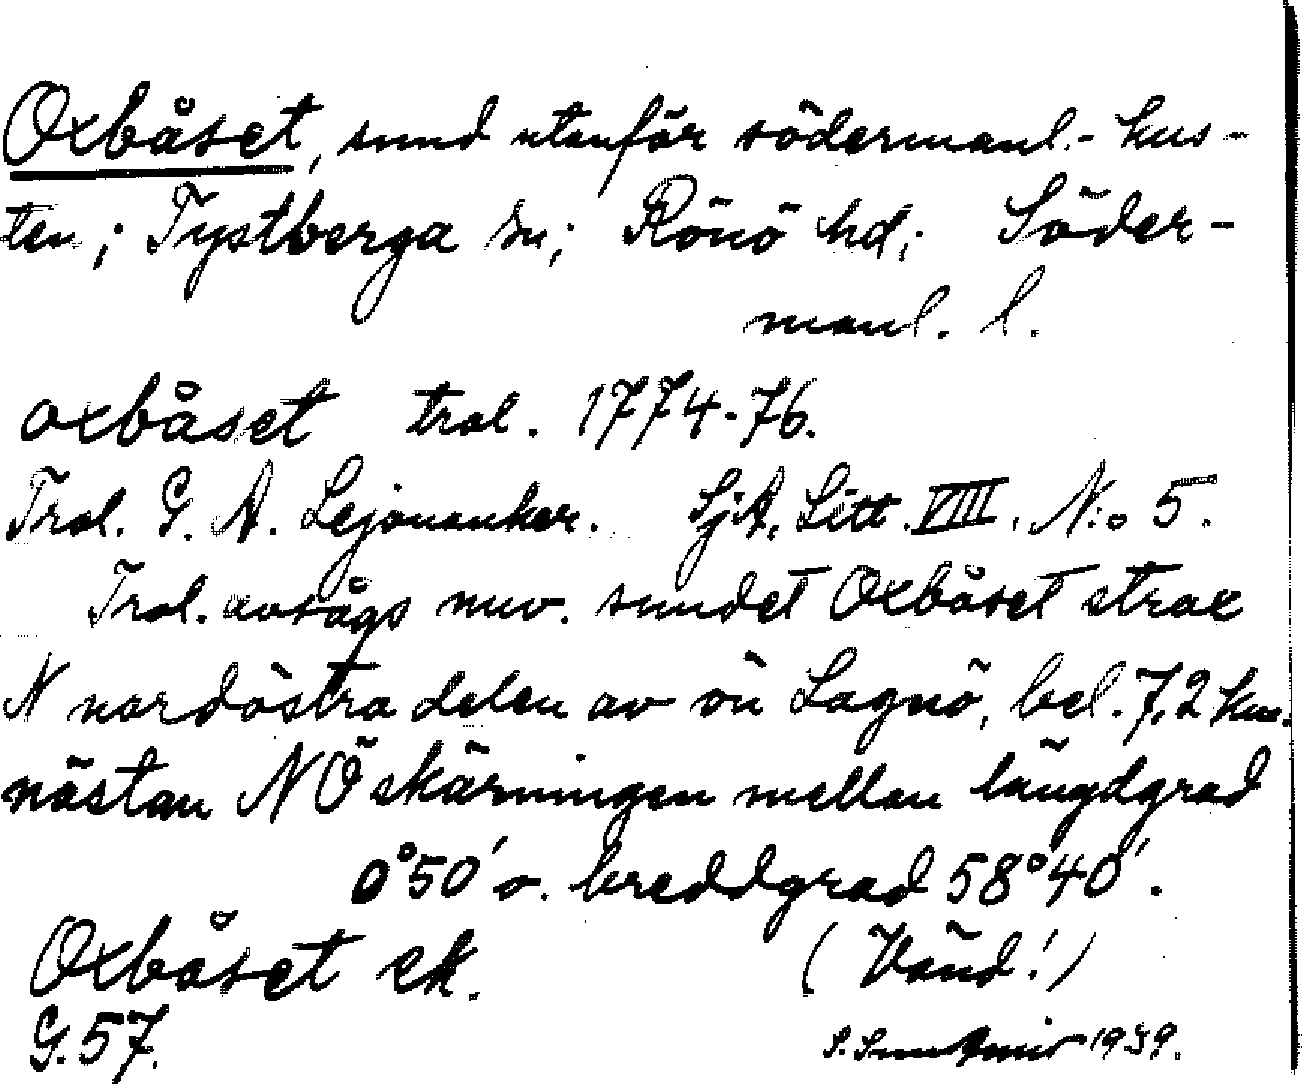 Oxbåset, sund utanför södermanl.- kus-
ten; Tystberga sn; Rönö hd; Söder-
manl. l.
oxbåset trol. 1774-76.
Trol. G. A. Lejonanker. SjA. Litt. VIII. N:o 5.
Trol. avsågs nuv. sundet Oxbåset strax
N nordöstra delen av ön Lagnö, bel. 7,2 km.
nästan NÖ skärningen mellan längdgrad
0°50' o. breddgrad 58°40'.
Oxbåset ek. (Vänd!)
G. 57. S. 1939.